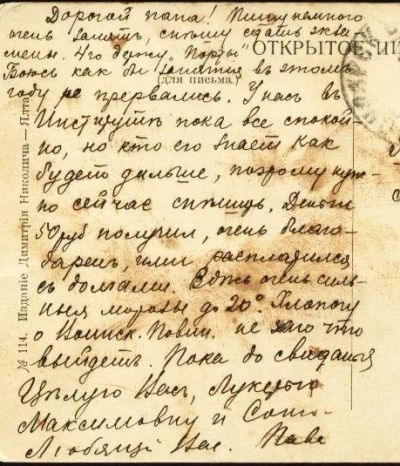 Дорогой папа! Пишу немного
очень занятъ, спѣшу сдать экза
мены. 4го держу „Порты"
ОТКРЫТОЕ
Боюсь какъ бы занятія въ этомъ
(для письма.)
году не прервались. У насъ въ
Институтѣ пока все спокой-
но, но кто его знаетъ какъ
будетъ дальше, поэтому нуж-
но сейчас спѣшить. Деньги
50 руб получилъ, очень благо-
даренъ, расплатился
съ долгами. очень силь-
ные морозы до 20°. Хлопочу
о Воинск. Повин. не знаю что
выйдетъ. Пока до свиданья
Цѣлую Васъ, Лукерью
Максимовну и Соню
Любящій Вас. Павел
№ 114. Изданіе Димитрія Николича — Ялта